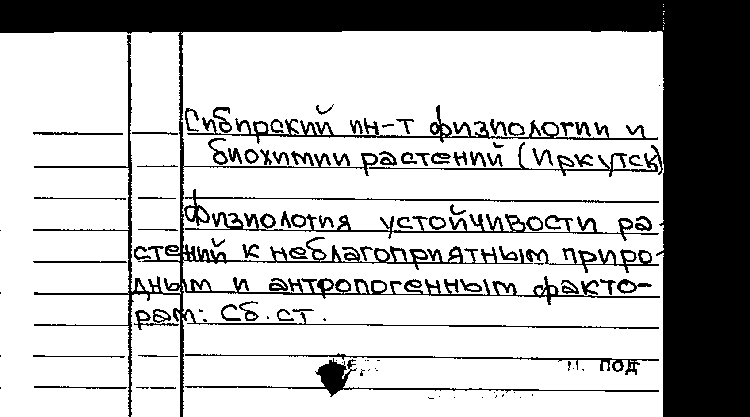 Сибирский ин-т физиологии и
биохимии растений (Иркутск)
Физиология устойчивости ра-
стений к неблагоприятным приро-
дным и антропогенным факто-
рам: Сб. ст.
под